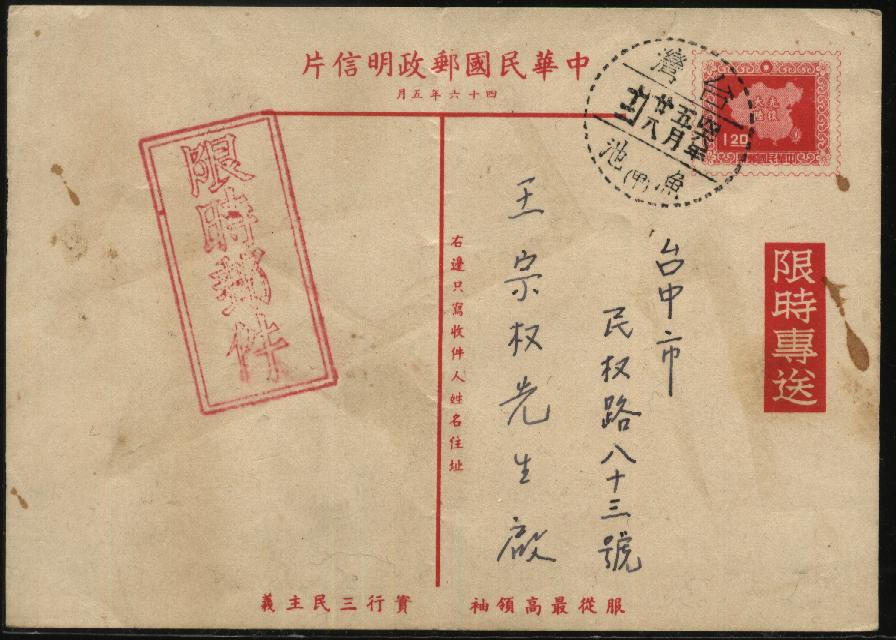 中華民國郵政明信片
四十六年五月
台灣
四六年
五月
廿八
魚池
(甲)
光復大陸
1.20
中華民國郵票
限時專送
台中市
民权路八十三號
王宗权先生啟
右邊只寫收件人姓名住址
限時郵件
服從最高領袖
實行三民主義